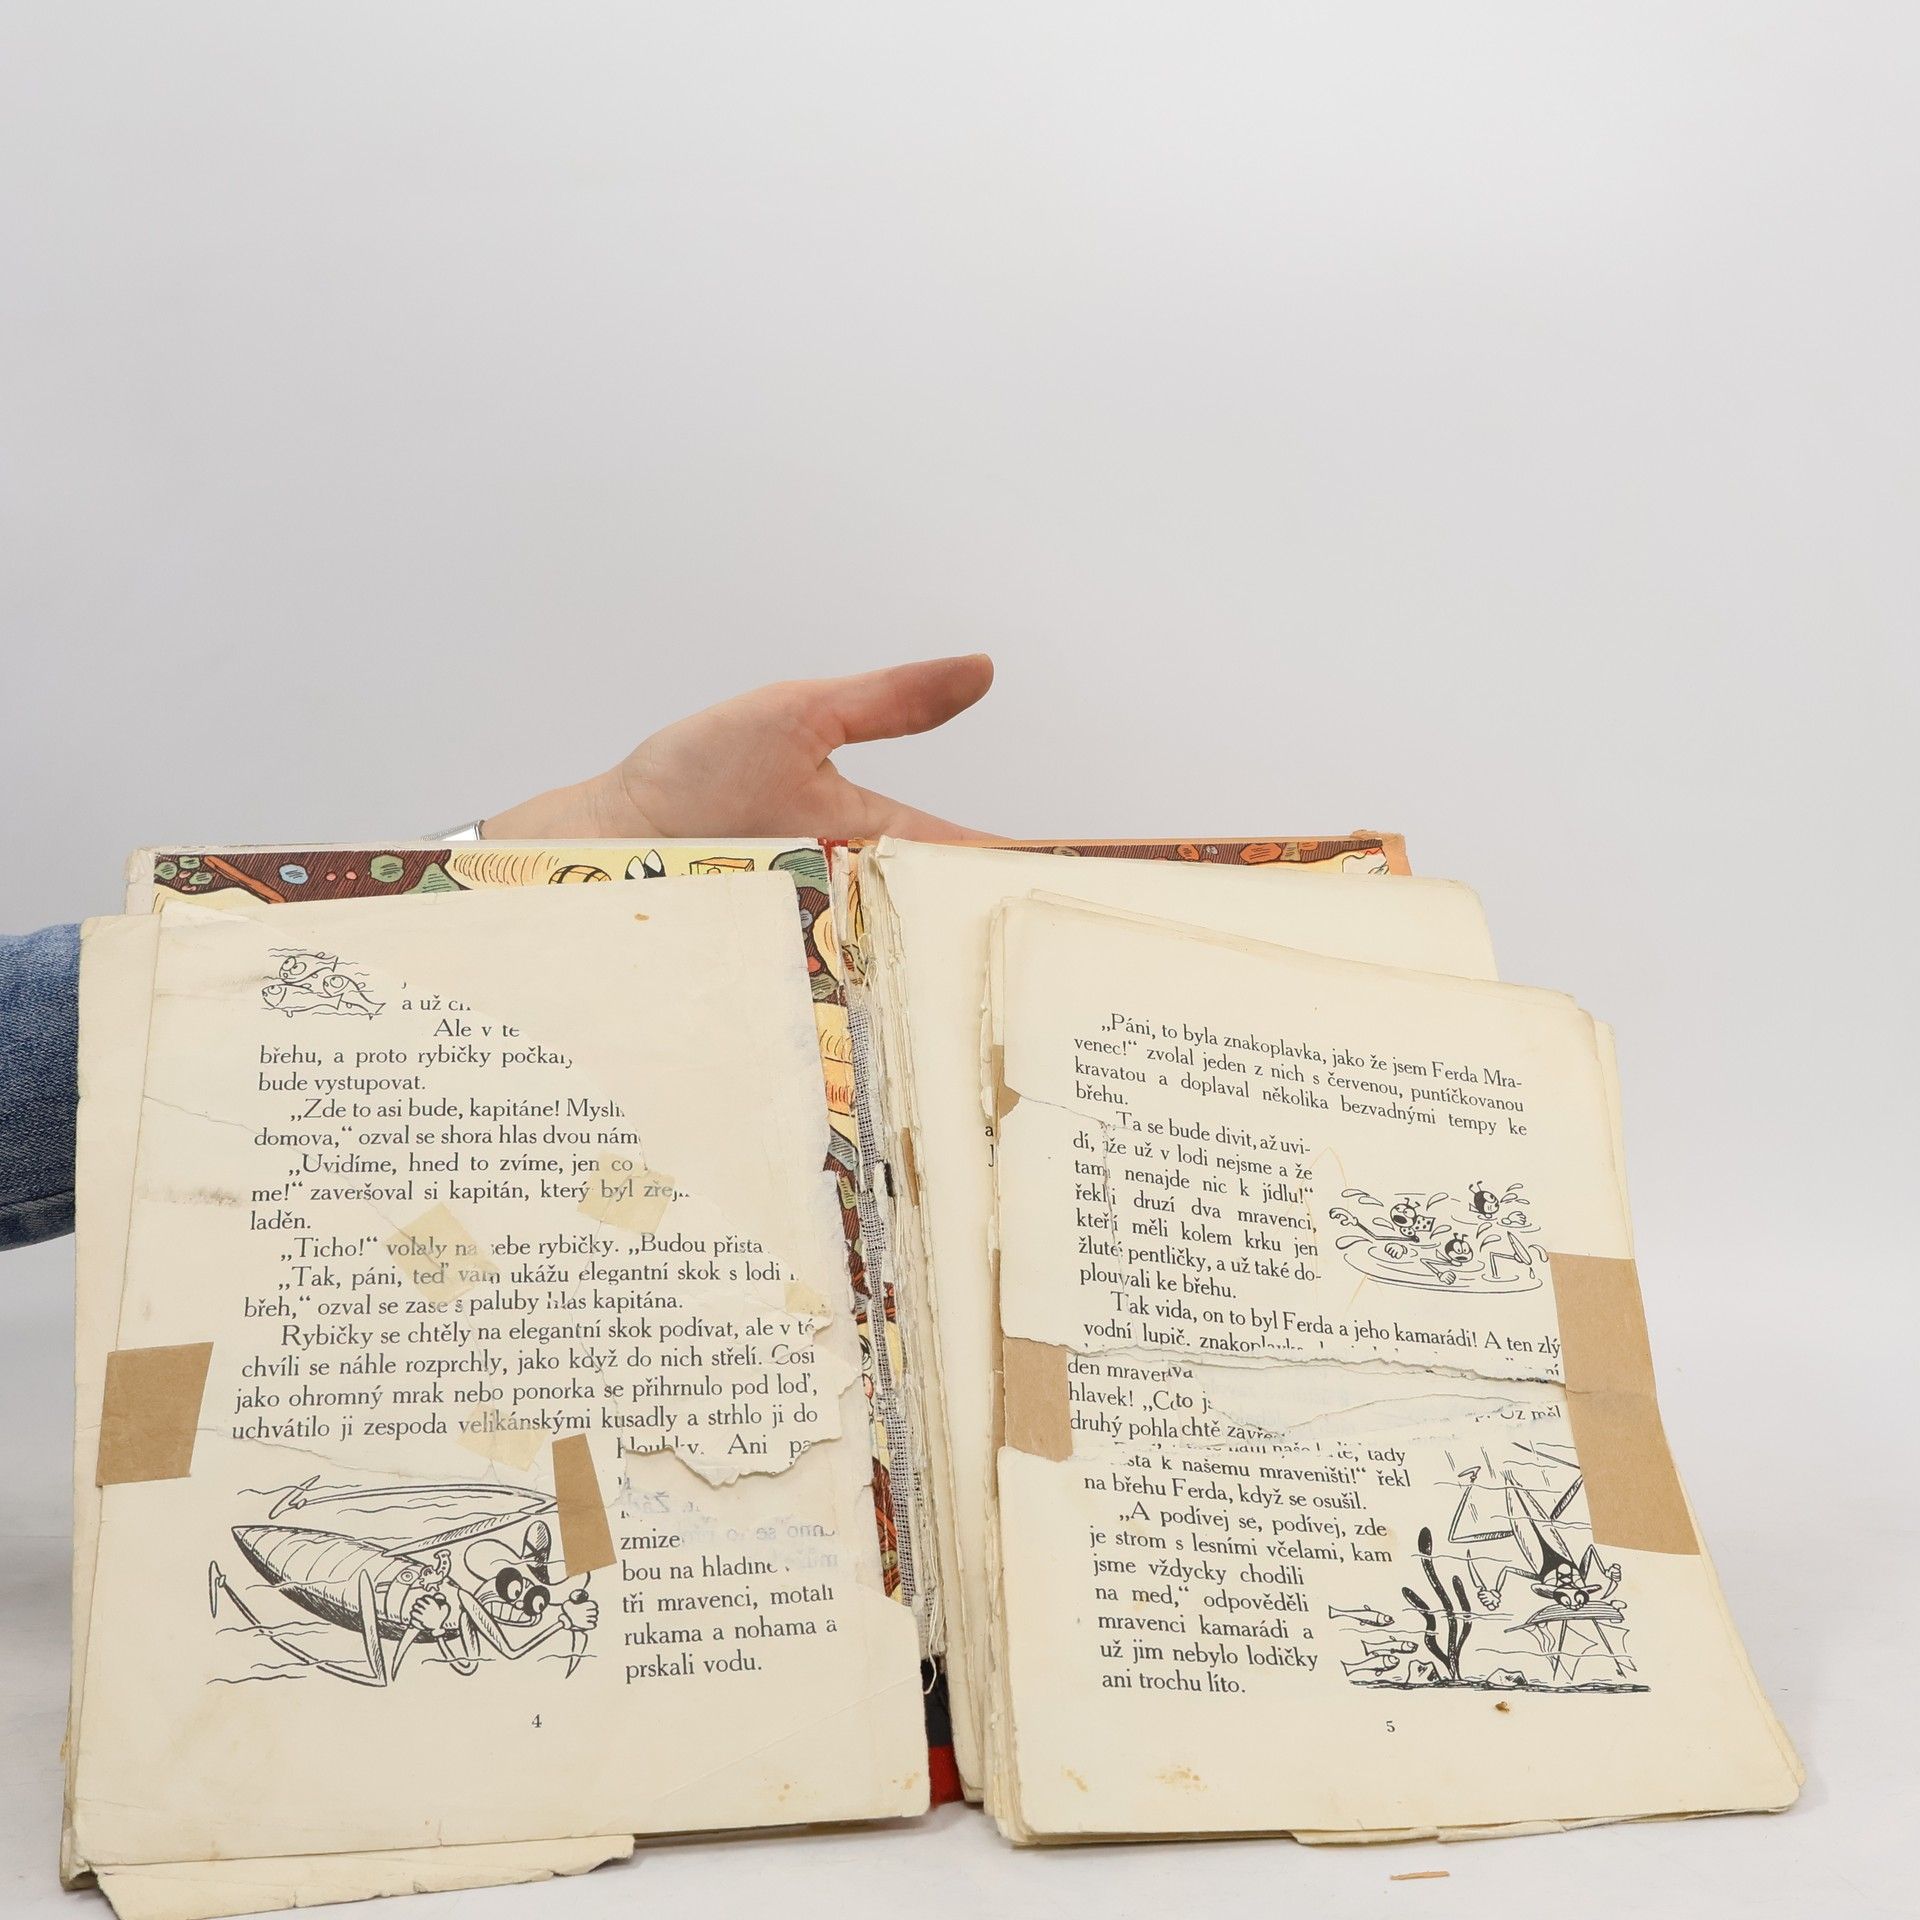 a už
Ale v te
břehu, a proto rybičky
bude vystupovat.
„Zde to asi bude, kapitáne!
domova,“ ozval se shora hlas dvou
„Uvidíme, hned to zvíme, jen co
me!“ zaveršoval si kapitán, který byl
laděn.
„Ticho!“ volaly na sebe rybičky. „Budou
„Tak, páni, teď vám ukážu elegantní skok s lodi
břeh,“ ozval se zase s paluby hlas kapitána.
Rybičky se chtěly na elegantní skok podívat, ale v té
chvíli se náhle rozprchly, jako když do nich střelí. Cosi
jako ohromný mrak nebo ponorka se přihrnulo pod loď,
uchvátilo ji zespoda velikánskými kusadly a strhlo ji do
hloubky. Ani
zmize
bou na hladinu
tři mravenci, motali
rukama a nohama a
prskali vodu.
4
„Páni, to byla znakoplavka, jako že jsem Ferda Mra-
venec!“ zvolal jeden z nich s červenou, puntíčkovanou
kravatou a doplaval několika bezvadnými tempy ke
břehu.
„Ta se bude divit, až uvi-
dí, že už v lodi nejsme a že
tam nenajde nic k jídlu!“
řekli druzí dva mravenci,
kteří měli kolem krku jen
žluté pentličky, a už také do-
plouvali ke břehu.
Tak vida, on to byl Ferda a jeho kamarádi! A ten zlý
vodní lupič,
den
hlavek!
druhý
tady
k našemu mraveništi!“ řekl
na břehu Ferda, když se osušil.
„A podívej se, podívej, zde
je strom s lesními včelami, kam
jsme vždycky chodili
na med,“ odpověděli
mravenci kamarádi a
už jim nebylo lodičky
ani trochu líto.
5